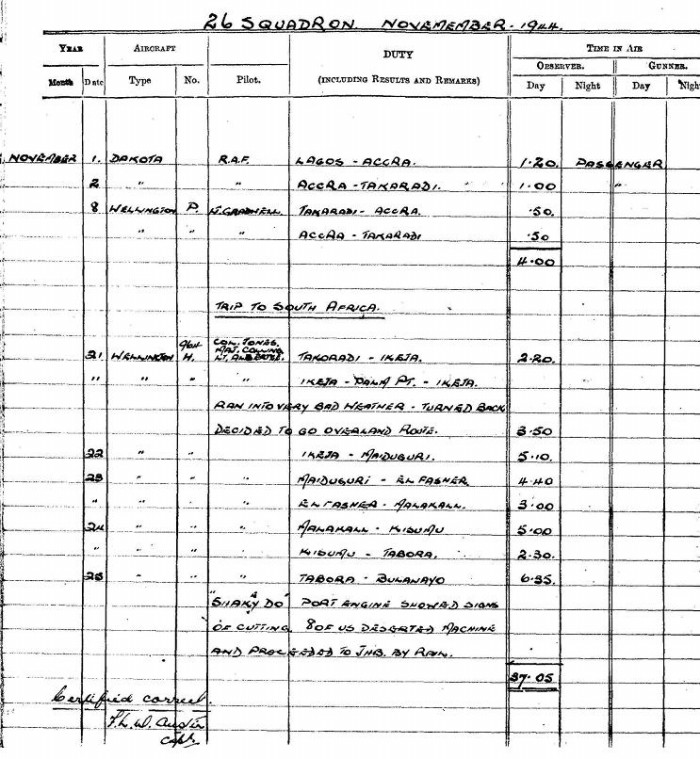 26 SQUADRON. NOVEMEMBER - 1944.
YEAR AIRCRAFT DUTY TIME IN AIR
OBSERVER. GUNNER.
Month Date Type No. Pilot. (INCLUDING RESULTS AND REMARKS) Day Night Day Night
NOVEMBER 1. DAKOTA R.A.F. LAGOS - ACCRA. 1.20. PASSENGER
2 " " ACCRA - TAKARADI. 1.00 "
8 WELLINGTON P. LT. GRADWELL. TAKARADI - ACCRA. .50.
" " " ACCRA - TAKARADI .50
4.00
TRIP TO SOUTH AFRICA.
21 WELLINGTON 964 H. COL. JONES. MAJ. COWING LT. TAKORADI - IKEJA. 2.20.
" " " " IKEJA - PALM PT. - IKEJA.
RAN INTO VERY BAD WEATHER - TURNED BACK
DECIDED TO GO OVERLAND ROUTE. 3.50
22 " " " IKEJA - MAIDUGURI. 5.10.
23 " " " MAIDUGURI - EL FASHER 4.40
" " " " EL FASHER - MALAKALL. 3.00
24 " " " MALAKALL - KISUMU 5.00
" " " " KISUMU - TABORA. 2.30.
25 " " " TABORA - BULAWAYO 6.35
"SHAKY DO" PORT ENGINE SHOWED SIGNS
OF CUTTING. 8 OF US DESERTED MACHINE
AND PROCEEDED TO JHB. BY RAIL.
37.05
Certified correct.
F.L.W. Austin
Capt.